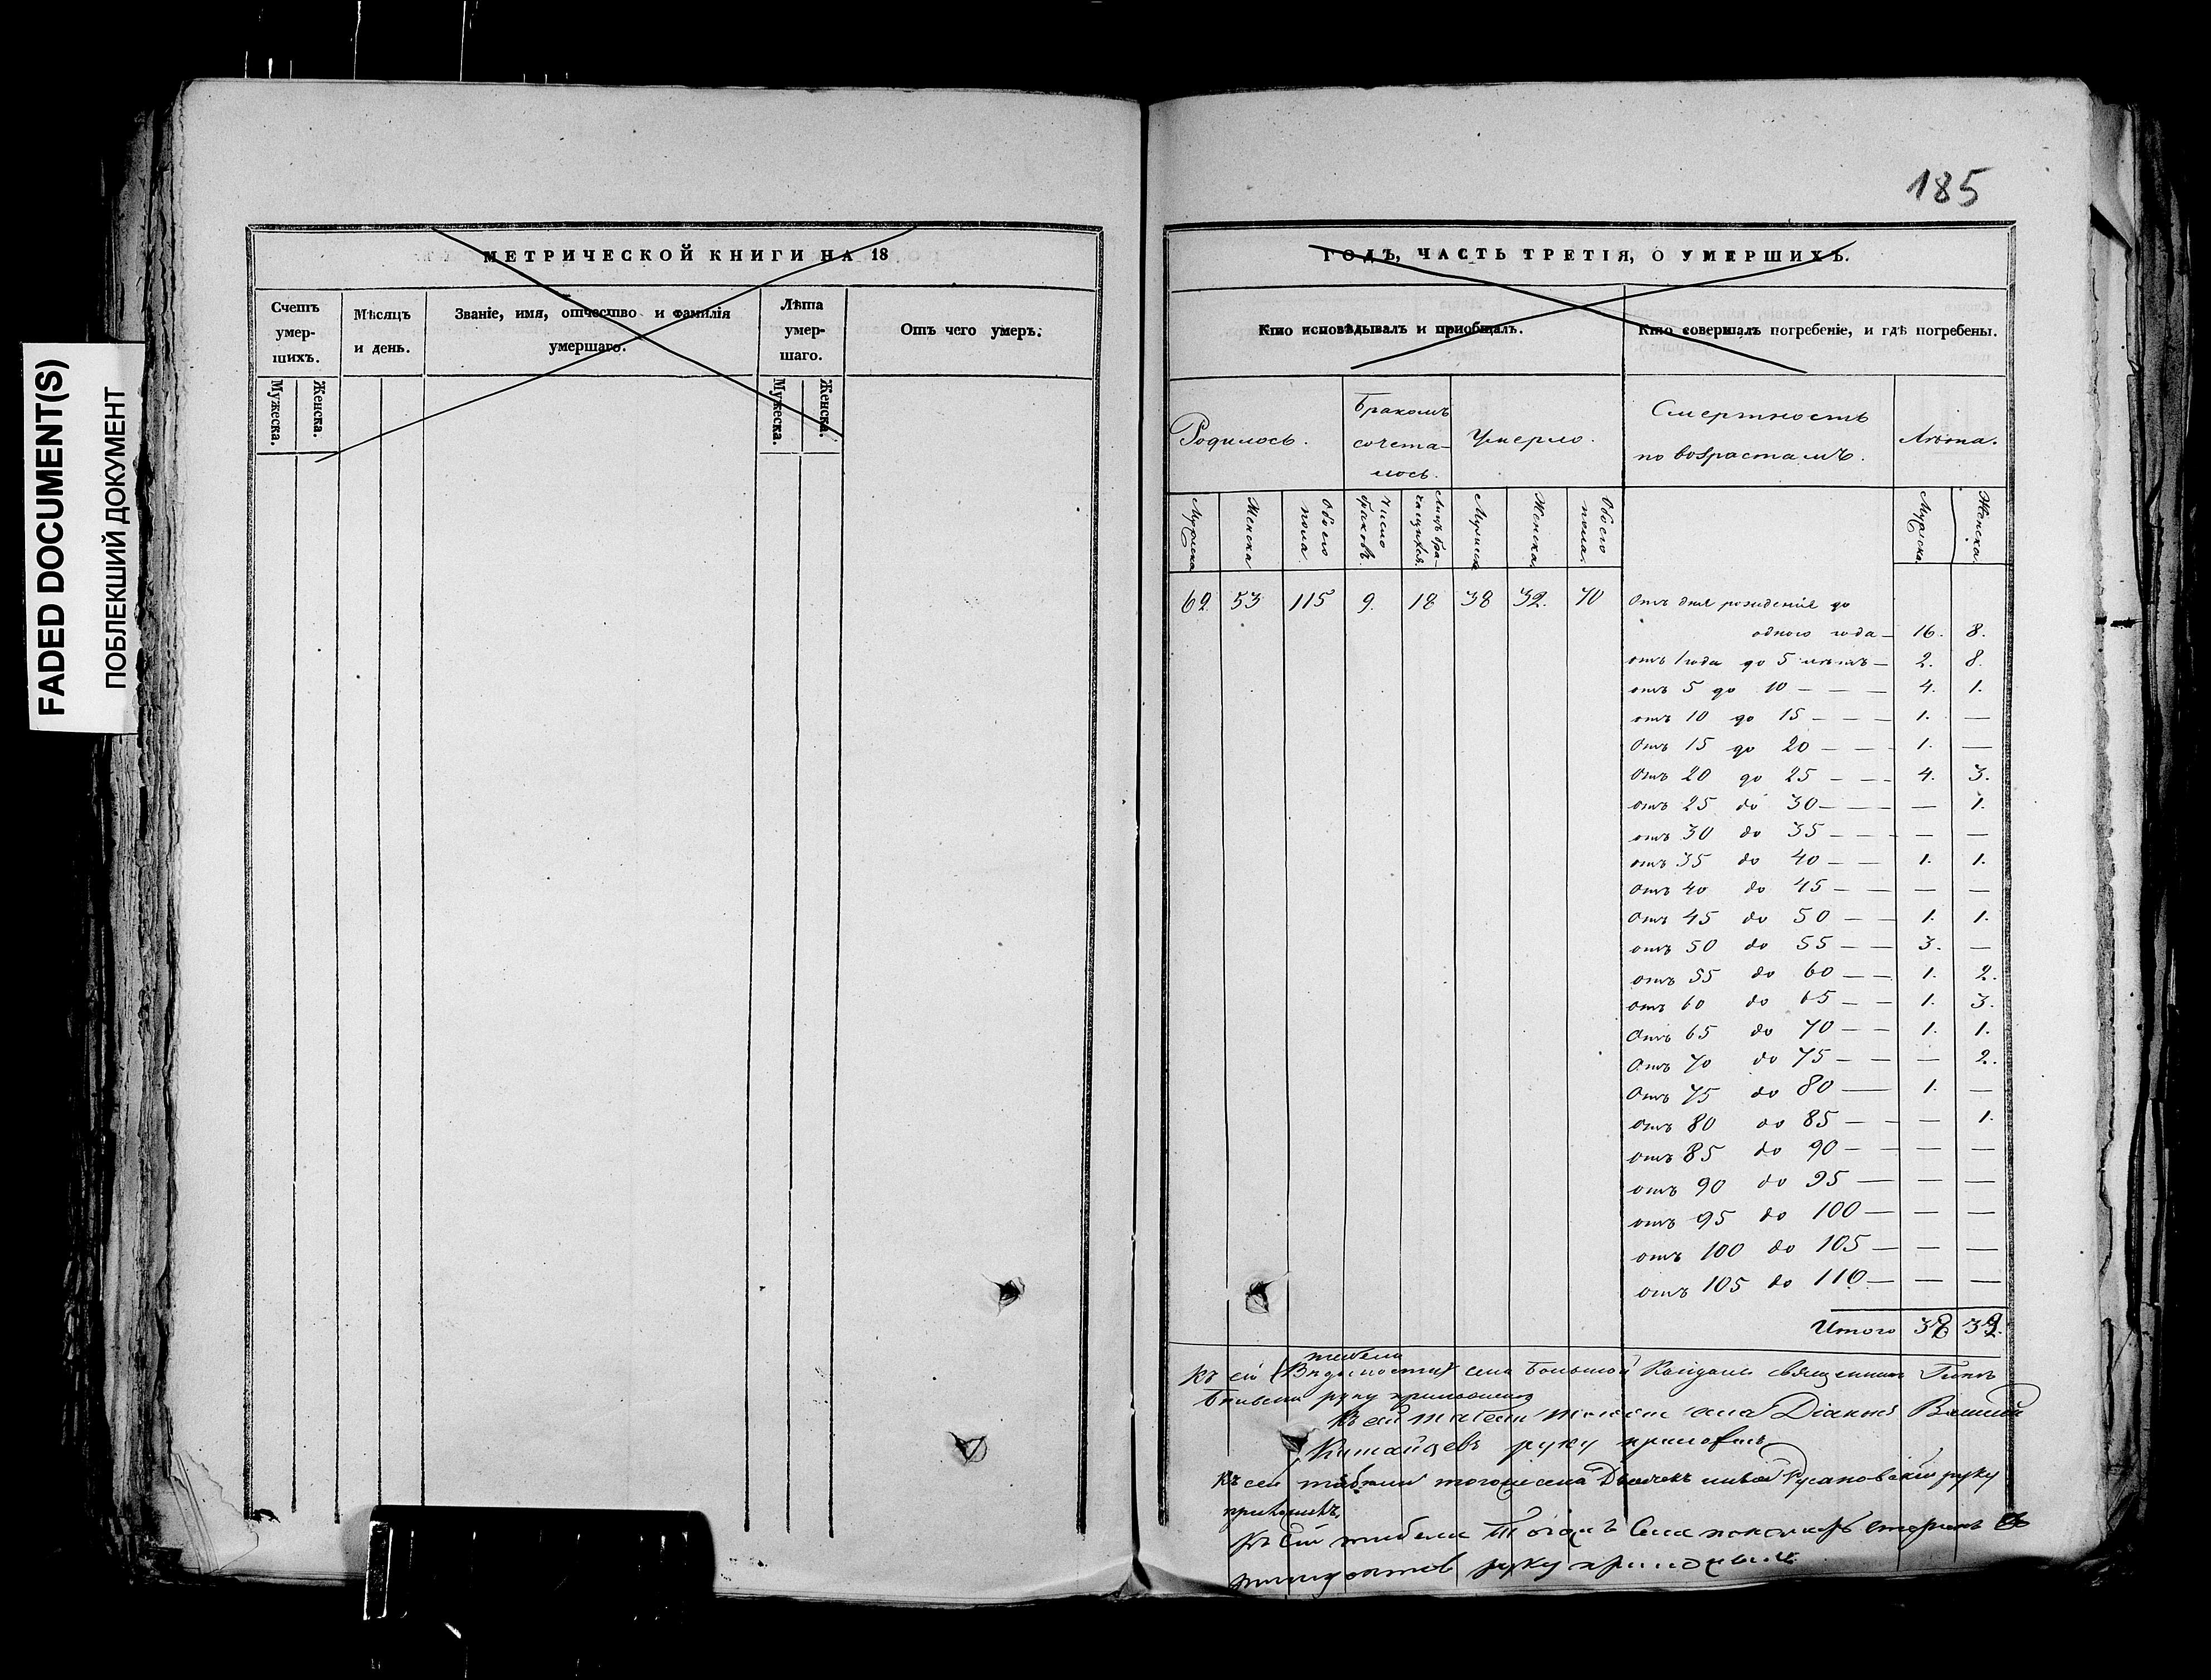 FADED DOCUMENT(S)
ПОБЛЕКШИЙ ДОКУМЕНТ
МЕТРИЧЕСКОЙ КНИГИ НА 18
Счетъ умер-шихъ.
Мѣсяцъ и день.
Званіе, имя, отчество и фамилія умершаго.
Лѣта умер-шаго.
Отъ чего умеръ.
Мужеска.
Женска.
Мужеска.
Женска.
185
ГОДЪ, ЧАСТЬ ТРЕТІЯ, О УМЕРШИХЪ.
Кто исповѣдывалъ и пріобщалъ.
Кто совершалъ погребеніе, и гдѣ погребены.
Родилось.
Бракомъ сочета-лось.
Умерло.
Смертность по возрастамъ.
Лѣта.
Мужеска
Женска
Обоего пола
Число браковъ.
Лицъ бра-чащихся.
Мужеска
Женска
Обоего пола.
Мужеска
Женска
62 53 115 9. 18 38 32. 70
Отъ дня рожденія до
одного года – 16. 8.
отъ 1 года до 5 лѣтъ – 2. 8.
отъ 5 до 10 – – – 4. 1.
отъ 10 до 15 – – – 1. —
Отъ 15 до 20 – – – 1. —
Отъ 20 до 25 – – – 4. 3.
отъ 25 до 30 – – – — 1.
отъ 30 до 35 – – – — —
отъ 35 до 40 – – 1. 1.
отъ 40 до 45 – – — —
Отъ 45 до 50 – – 1. 1.
отъ 50 до 55 – – 3. —
отъ 55 до 60 – – 1. 2.
отъ 60 до 65 – – 1. 3.
Отъ 65 до 70 – – 1. 1.
Отъ 70 до 75 – – — 2.
Отъ 75 до 80 — 1. —
отъ 80 до 85 – – — 1.
отъ 85 до 90 – – — —
отъ 90 до 95 — — —
отъ 95 до 100 – — —
отъ 100 до 105 – — —
отъ 105 до 110 – — —
Итого 38 32.
табели
Къ сей (Вѣдомости) села Большой священникъ
руку приложилъ
Къ сей табели тогожъ села Діаконъ
Китайцевъ руку приложилъ
Къ сей табели тогоже села Дьячекъ руку
приложилъ,
Къ сей табели Тогожъ Села пономарь
руку приложилъ